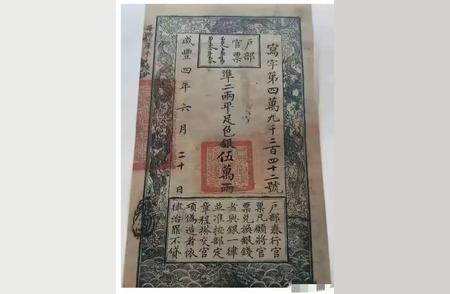 寫字第四萬九千二百四十二號
戶部
官票
準二兩平足色銀伍萬兩
咸豐四年六月二十日
戶部奏行官
票凡願將官
票兌換銀錢
者與銀一律
並准按部定
章程搭交官
項偽造者依
律治罪不貸